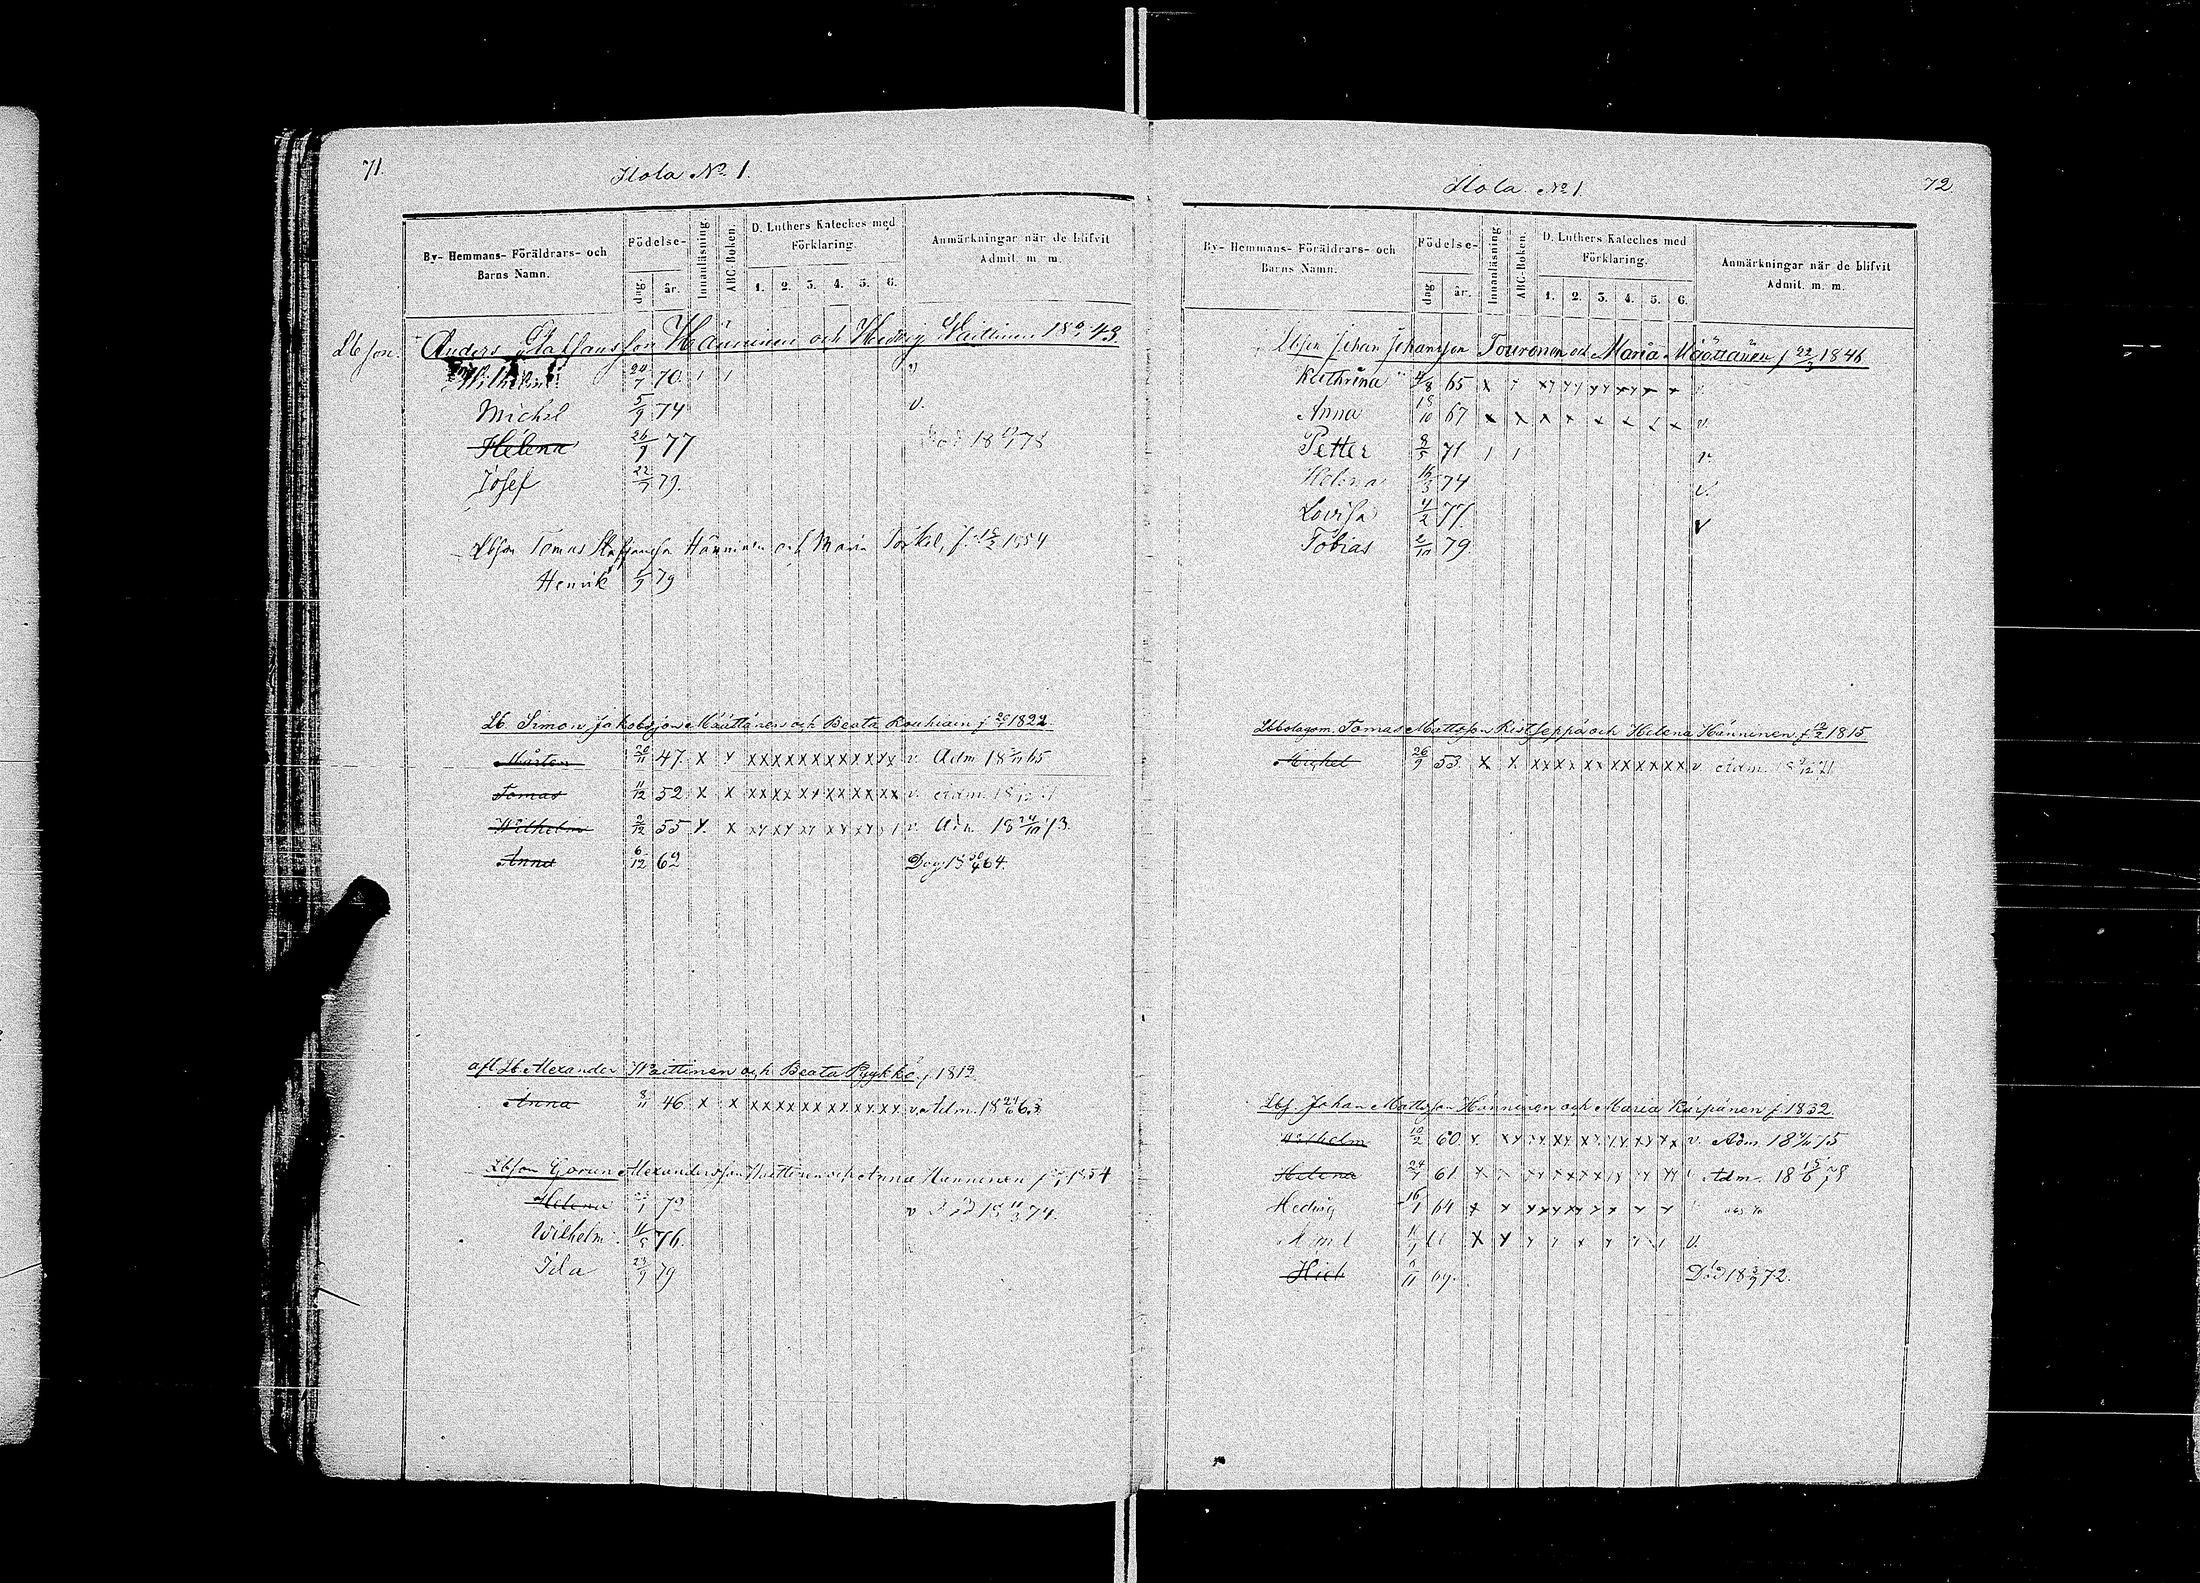 71.
Ilola № 1.
By- Hemmans- Föräldrars- och Barns Namn.
Födelse-
dag
år.
Innanläsning
ABC-Boken.
D. Luthers Kateches med Förklaring.
1. 2. 3. 4. 5. 6.
Anmärkningar när de blifvit Admit. m. m.
Lbson. Anders Staffansson Hänninen och Hedvig Waittinen 18 43
Wilhelm 24/7 70. 1 1 v
Michel 5/9 74 v.
Helena 26/9 77 Död 18 78
Josef 22/7 79.
Lbson Tomas Staffansson Hänninen och Maria Torkel, f. 1854
Henrik 79
Lb. Simon Jakobsson Määttänen och Beata Rouhiain f 1822.
Mårten 20/11 47. x x xx xx xx xx xx xx v. Adm 18 65
Tomas 11/12 52 x x xx xx xx xx xx xx v. Adm. 18
Wilhelm 2/12 55 x. x xx xx xx xx xx x1 v. Adm. 18 24/10 73.
Anna 6/12 62 Dog 18 64.
afl. Lb. Alexander Waittinen och Beata Pyykkö f. 1819.
Anna 8/11 46 x x xx xx xx xx xx xx v. Adm. 18 63
Lbson Goran Alexandersson Waittinen och Anna Hänninen f 1854
Helena 23/1 72 v Död 18 11/3 74.
Wilhelm. 11/5 76.
Ida 23/9 79
Ilola № 1.
72
By- Hemmans- Föräldrars- och Barns Namn.
Födelse-
dag
år.
Innanläsning
ABC-Boken.
D. Luthers Kateches med Förklaring.
1. 2. 3. 4. 5. 6.
Anmärkningar när de blifvit Admit. m. m.
Lbson Johan Johansson Touronen och Maria Määttänen f 22/3 1846
Kathrina 65 x x xx xx xx xx x x v.
Anna 18/10 67 x x x x x x x x v.
Petter 8/5 71 1 1 v.
Helena 16/3 74 v.
Lovisa 4/2 77. v
Tobias 2/10 79.
Lbbolagsm. Tomas Mattsson Ristseppä och Helena Hänninen f. 12/2 1815.
Michel 26/9 53. x x. xx xx xx xx xx xx v. Adm. 18 71
Lbs. Johan Mattsson Hänninen och Maria Kärpänen f. 1832.
Wilhelm 10/2 60 x. xx xx xx xx xx xx v. Adm. 18 75
Helena 24/7 61 x x xx xx xx xx xx xx Adm. 18 15/6 78
Hedvig 16/1 64 x x xx xx xx x x x
x x x x x x x 1 v.
69. Död 18 72.